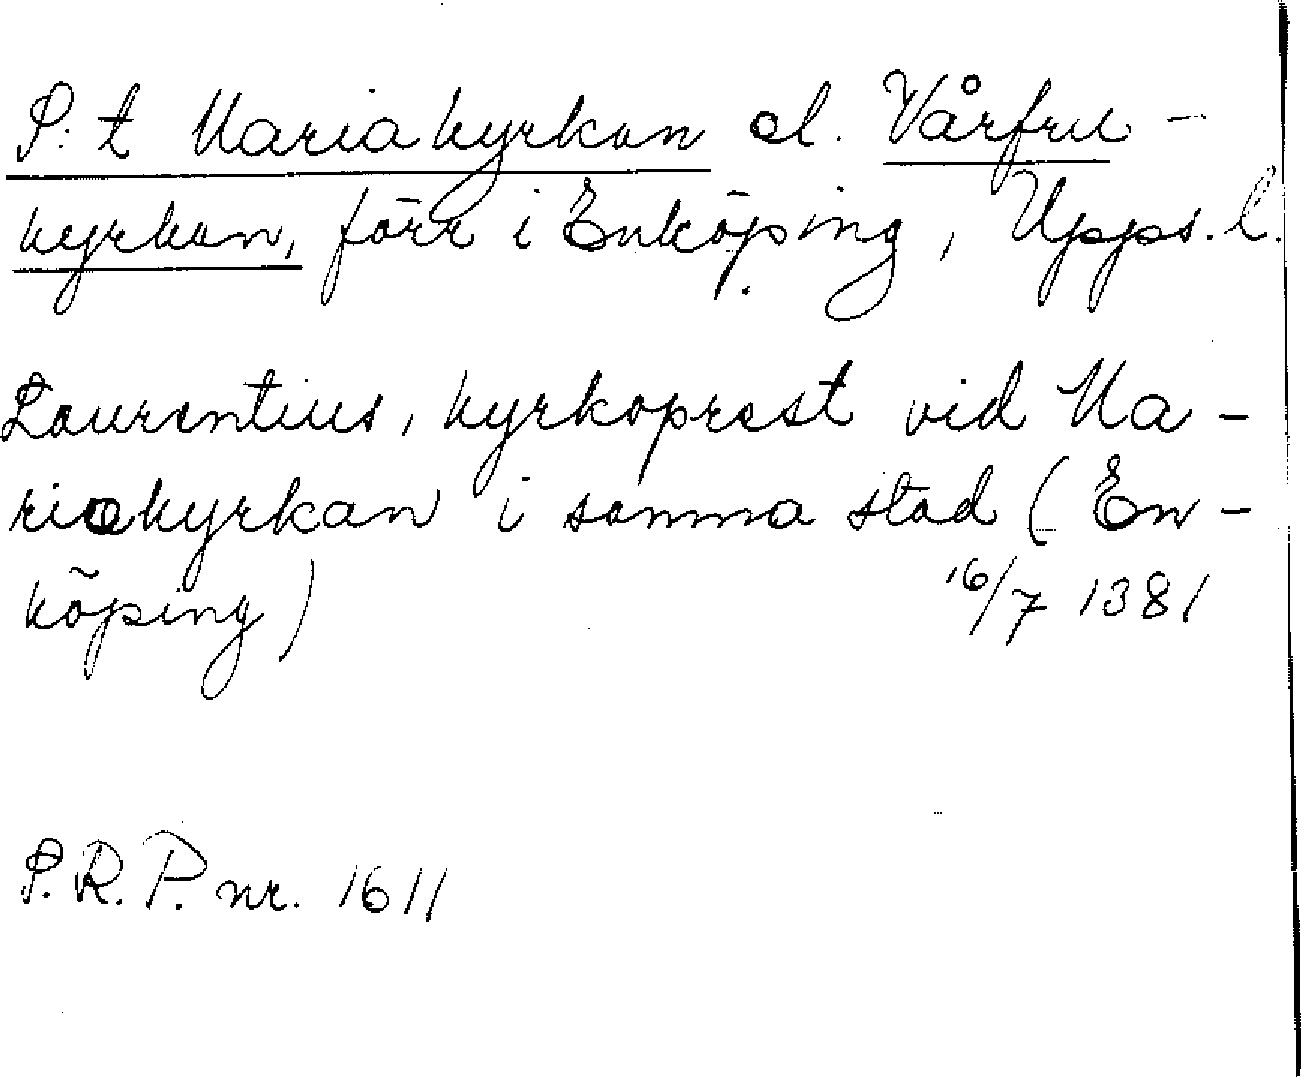 S:t Mariakyrkan el. Vårfru-
kyrkan, förr i Enköping, Upps. l.
Laurentius, kyrkoprest vid Ma-
riakyrkan i samma stad (En-
köping) 16/7 1381
S. R. P. nr. 1611